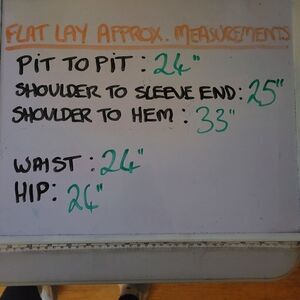 FLAT LAY APPROX. MEASUREMENTS
PIT TO PIT : 24"
SHOULDER TO SLEEVE END: 25"
SHOULDER TO HEM : 33"
WAIST : 24"
HIP: 24"